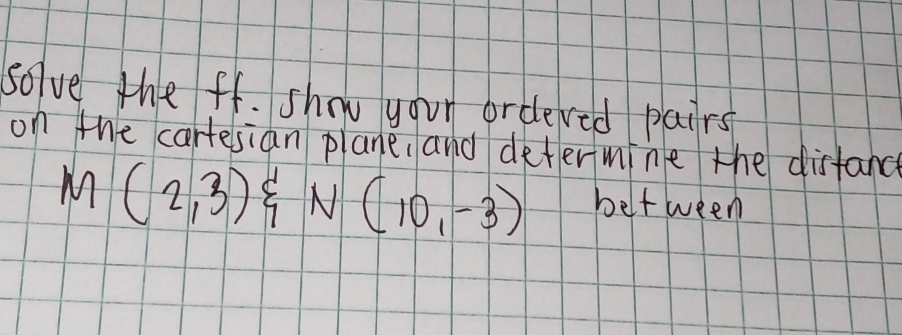 solve the ff. show your ordered pairs
on the cartesian plane, and determine the distance
M (2,3) & N (10,-3) between